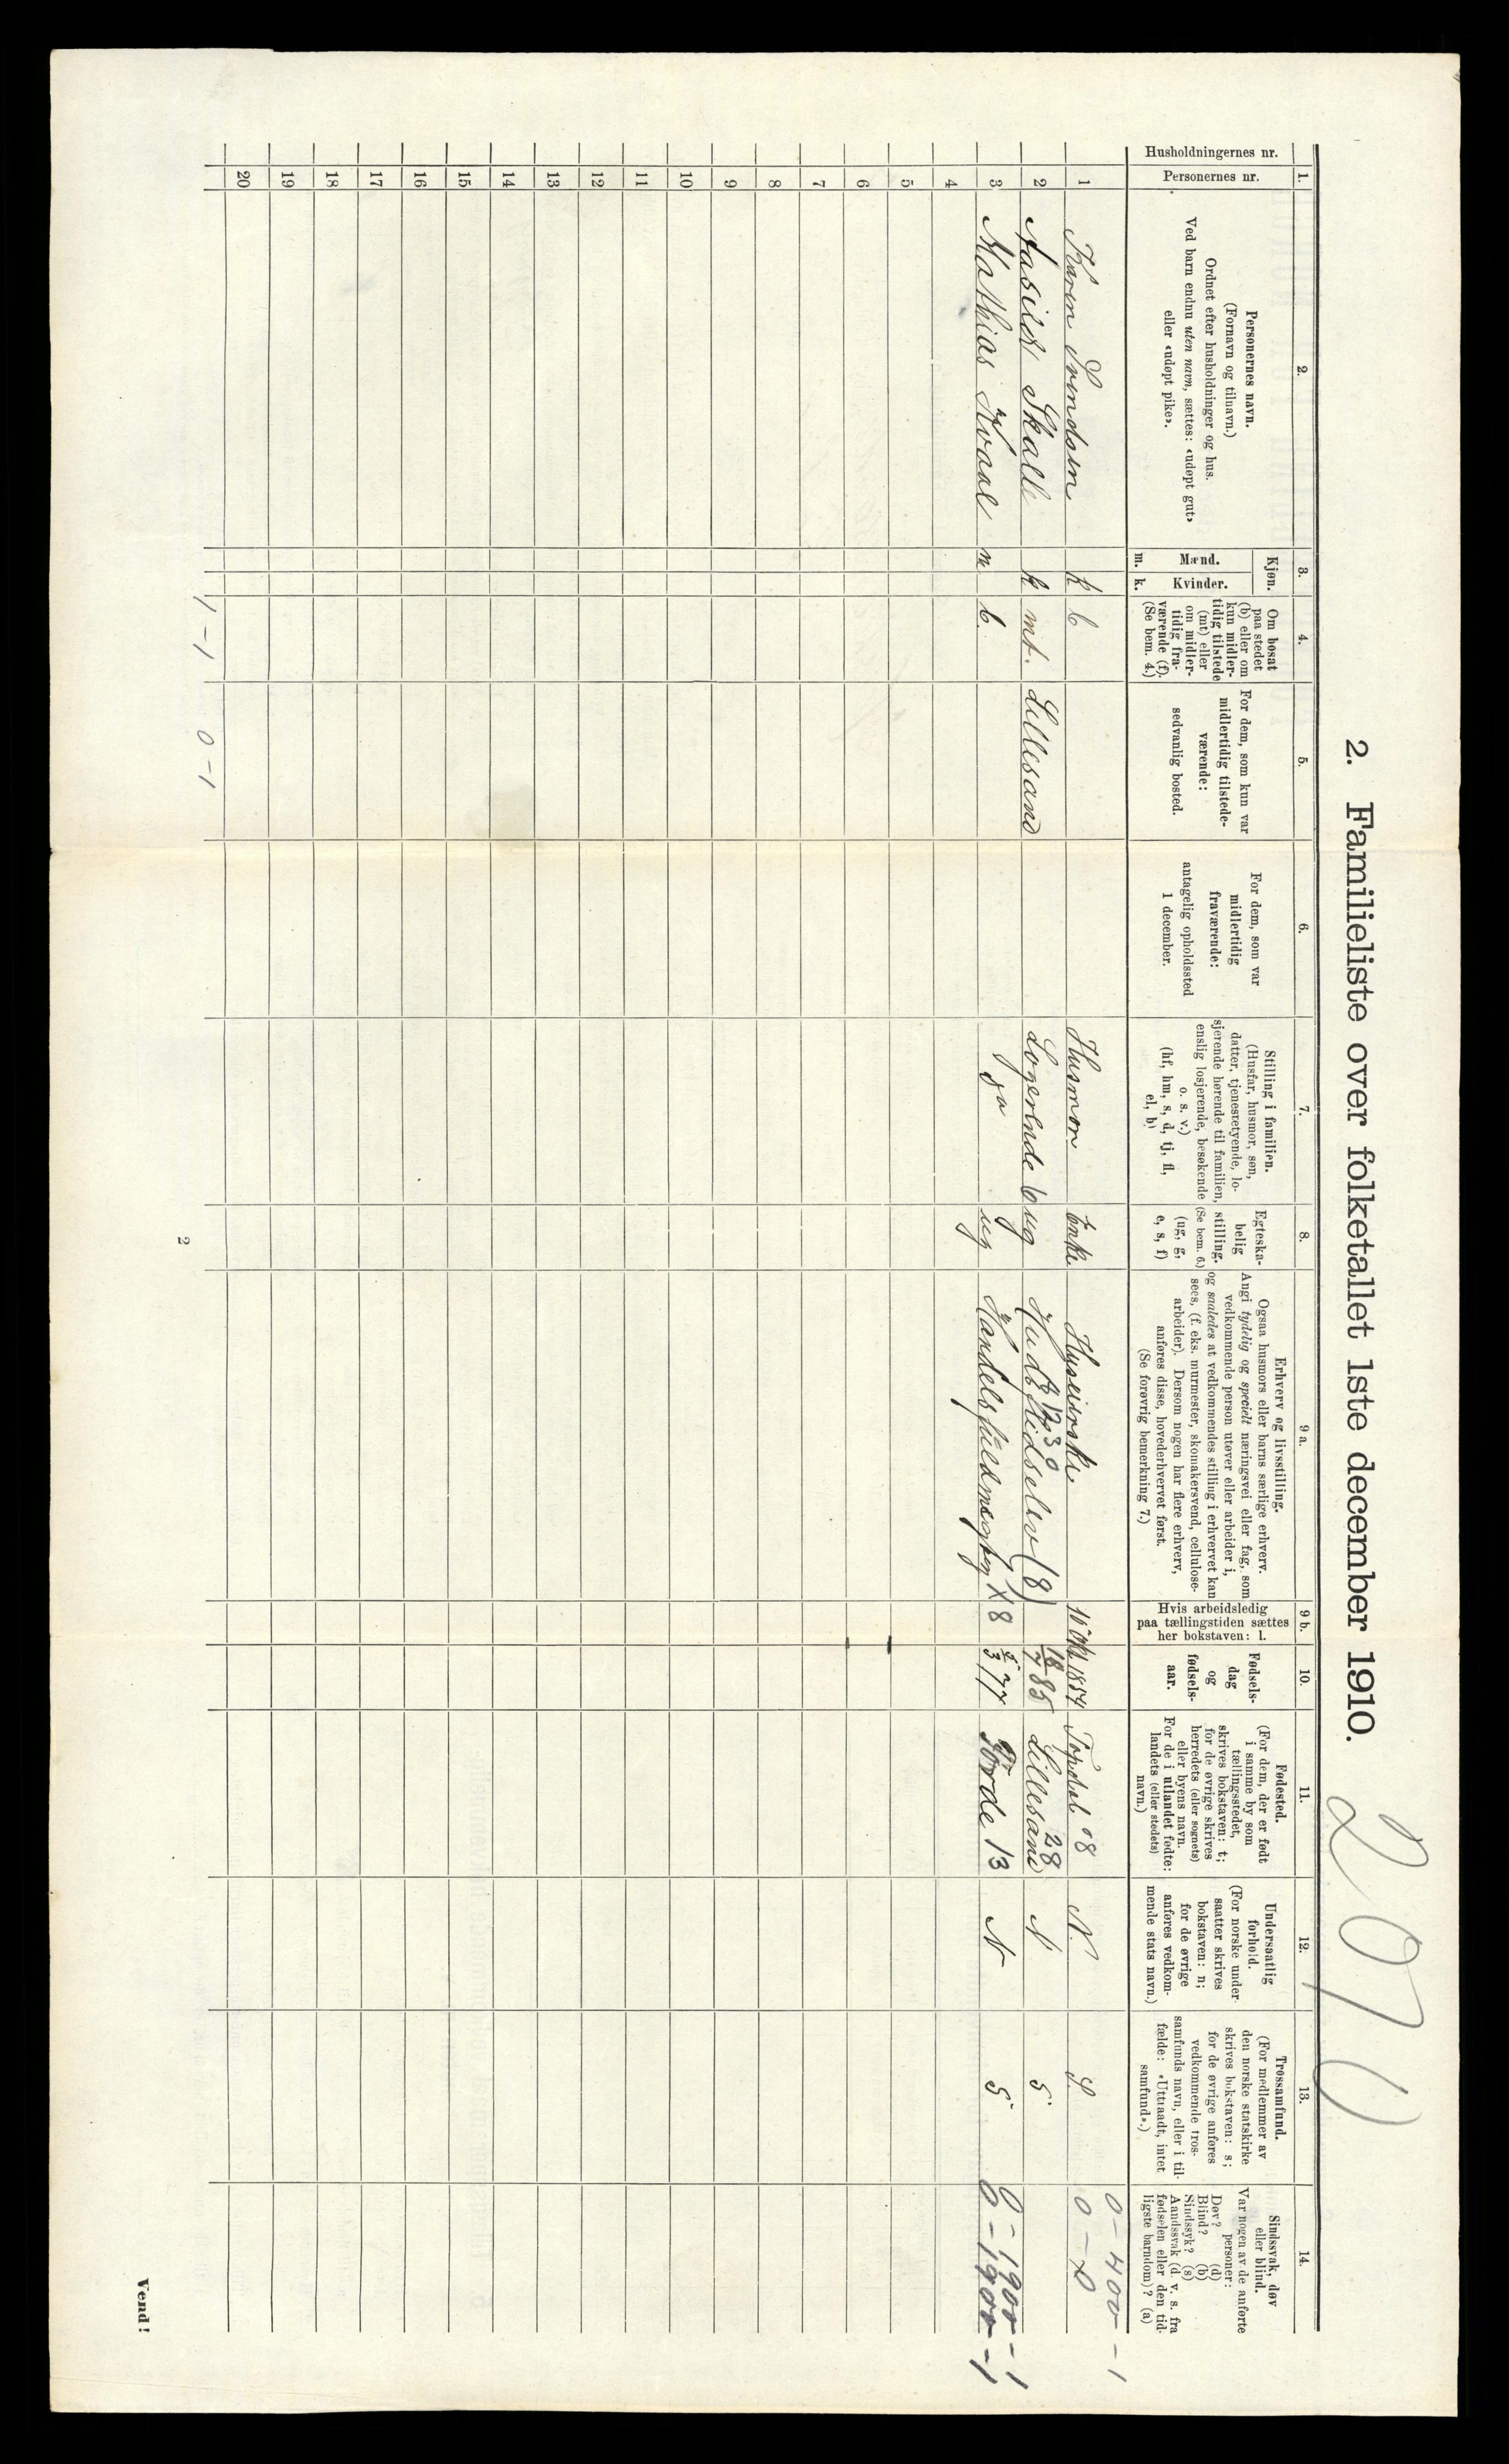 2. Familieliste over folketallet 1ste december 1910.
Husholdningernes nr.
1.
Personernes nr.
2.
Personernes navn.
(Fornavn og tilnavn.)
Ordnet efter husholdninger og hus.
Ved barn endnu uten navn, sættes: «udøpt gut»
eller «udøpt pike».
3.
Kjøn.
Mænd.
Kvinder.
m.
k.
4.
Om bosat
paa stedet
(b) eller om
kun midler-
tidig tilstede
(mt) eller
om midler-
tidig fra-
værende (f).
(Se bem. 4.)
5.
For dem, som kun var
midlertidig tilstede-
værende:
sedvanlig bosted.
6.
For dem, som var
midlertidig
fraværende:
antagelig opholdssted
1 december.
7.
Stilling i familien.
(Husfar, husmor, søn,
datter, tjenestetyende, lo-
sjerende hørende til familien,
enslig losjerende, besøkende
o. s. v.)
(hf, hm, s, d, tj, fl,
el, b)
8.
Egteska-
belig
stilling.
(Se bem. 6.)
(ug, g,
e, s, f)
9 a.
Erhverv og livsstilling.
Ogsaa husmors eller barns særlige erhverv.
Angi tydelig og specielt næringsvei eller fag, som
vedkommende person utøver eller arbeider i,
og saaledes at vedkommendes stilling i erhvervet kan
sees, (f. eks. murmester, skomakersvend, cellulose-
arbeider). Dersom nogen har flere erhverv,
anføres disse, hovederhvervet først.
(Se forøvrig bemerkning 7.)
9 b.
Hvis arbeidsledig
paa tællingstiden sættes
her bokstaven: l.
10.
Fødsels-
dag
og
fødsels-
aar.
11.
Fødested.
(For dem, der er født
i samme by som
tællingsstedet,
skrives bokstaven: t;
for de øvrige skrives
herredets (eller sognets)
eller byens navn.
For de i utlandet fødte:
landets (eller stedets)
navn.)
12.
Undersaatlig
forhold.
(For norske under-
saatter skrives
bokstaven: n;
for de øvrige
anføres vedkom-
mende stats navn.)
13.
Trossamfund.
(For medlemmer av
den norske statskirke
skrives bokstaven: s;
for de øvrige anføres
vedkommende tros-
samfunds navn, eller i til-
fælde: «Uttraadt, intet
samfund».)
14.
Sindssvak, døv
eller blind.
Var nogen av de anførte
personer:
Døv? (d)
Blind? (b)
Sindssyk? (s)
Aandssvak (d. v. s. fra
fødselen eller den tid-
ligste barndom)? (a)
0-400-1
1 Karen Svendsen k b Husmor Enke Huseierske 1854 Topdal 08 N. S. 0-0
1230
2 Aasild Skall k mt. Lillesand Logerende b ug (8) 18/7 85 Lillesand 28 N S 0-1900-1
3 Mathias Kvaal m b. Do ug Handelsfuldmegtig 8 5/3 77 Førde 13 N S 0-1900-1
4
5
6
7
8
9
10
11
12
13
14
15
16
17
18
19
20
1-1 0-1
2
Vend!